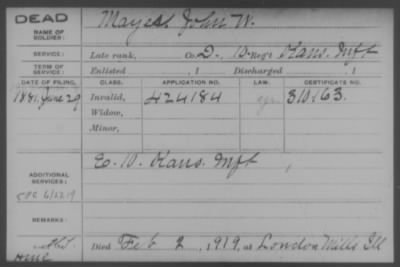 DEAD
NAME OF SOLDIER: Mayes, John W.
SERVICE: Late rank, Co. D., 10 Reg't Kans. Inft
TERM OF SERVICE: Enlisted , 1 Discharged , 1
DATE OF FILING. CLASS. APPLICATION NO. LAW. CERTIFICATE NO.
1881 June 29 Invalid, 424184 310163.
Widow,
Minor,
ADDITIONAL SERVICES: E. 10. Kans. Inft
REMARKS:
Died Feb 2, 1919, at London Mills Ill